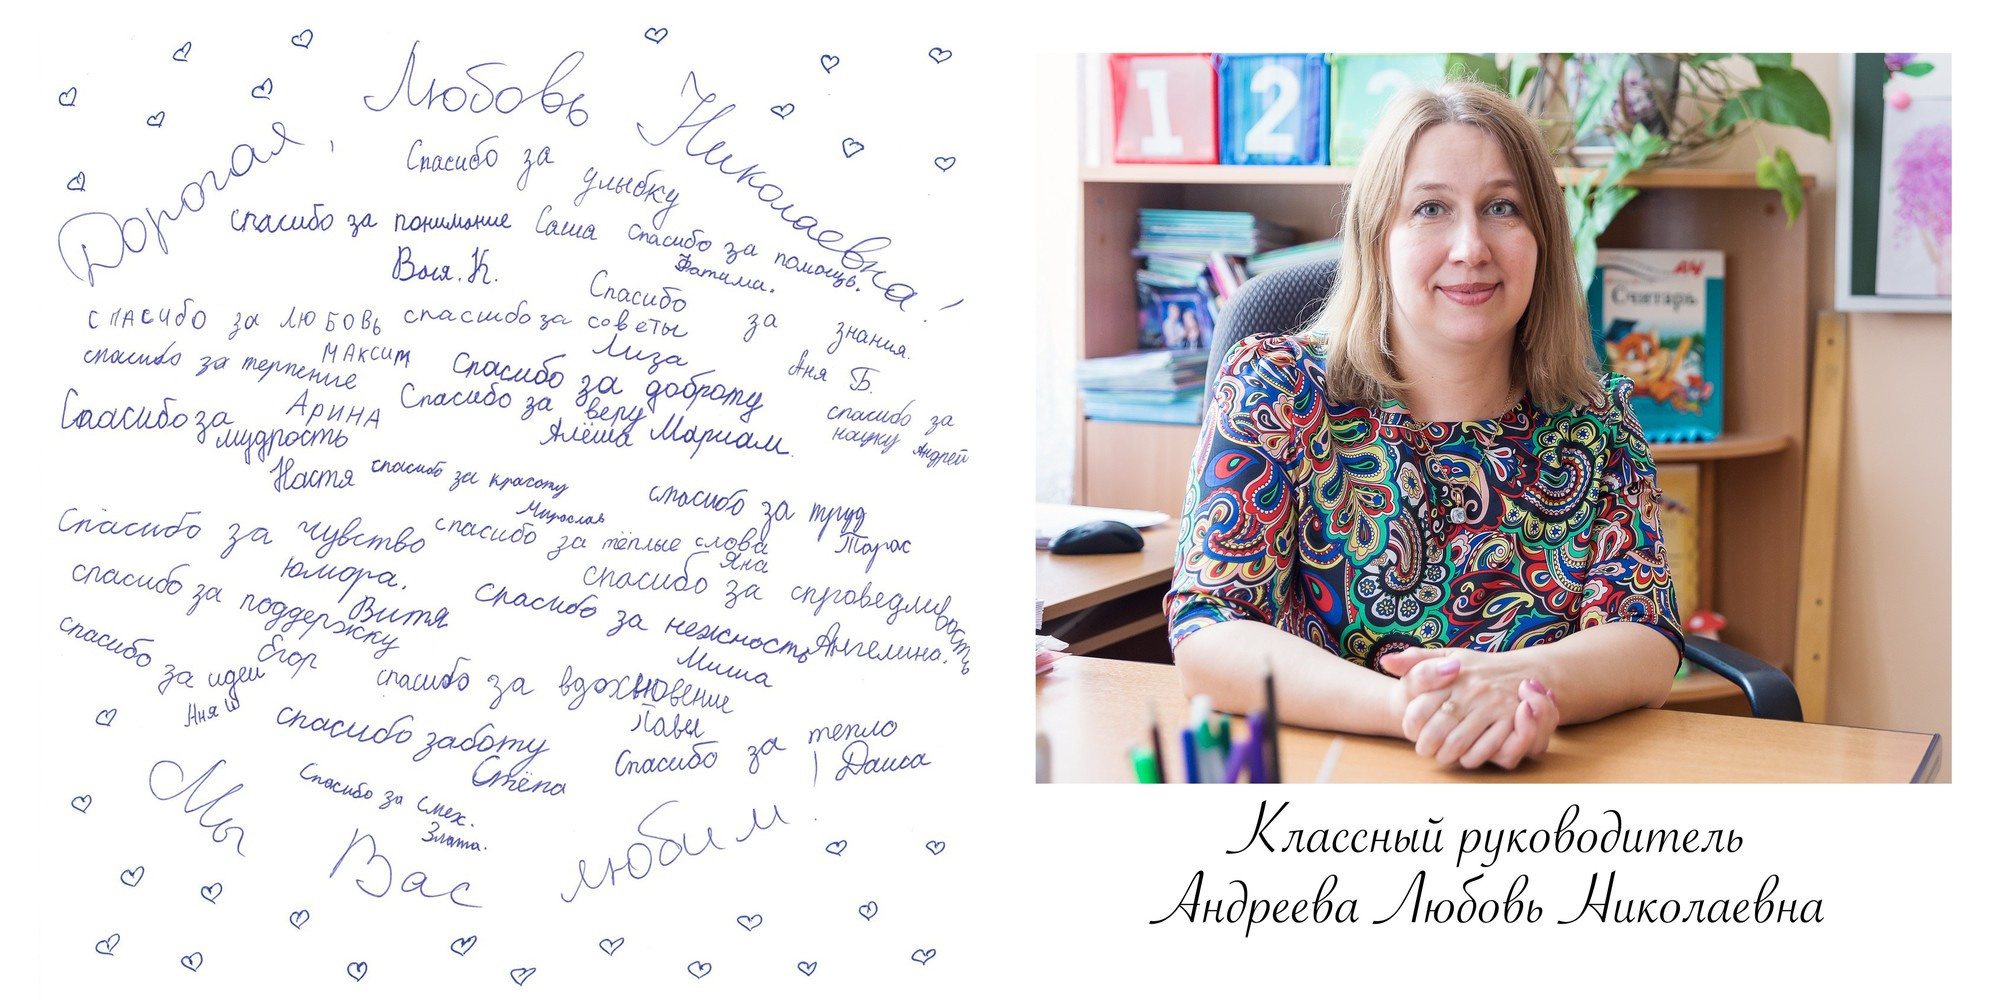 Дорогая, Любовь Николаевна!
Спасибо за улыбку
Саша
спасибо за понимание
Вася.К.
спасибо за помощь.
Фатима.
спасибо за любовь
Максим
спасибо за советы
Лиза
Спасибо за знания.
Аня Б.
спасибо за терпение
Арина
Спасибо за доброту
Мариам
Спасибо за веру
Алёша
спасибо за науку
Андрей
Спасибо за мудрость
Настя
спасибо за красоту
Мирослав
спасибо за труд
Тарас
Спасибо за чувство юмора.
Витя
спасибо за тёплые слова
Яна
спасибо за справедливость
Ангелина.
спасибо за поддержку
Егор
спасибо за нежность
Миша
спасибо за идеи
Аня Ш
спасибо за вдохновение
Павел
спасибо заботу
Стёпа
Спасибо за тепло
Даиса
Спасибо за смех.
Злата.
Мы Вас любим!
1 2 3
Считарь
Классный руководитель
Андреева Любовь Николаевна